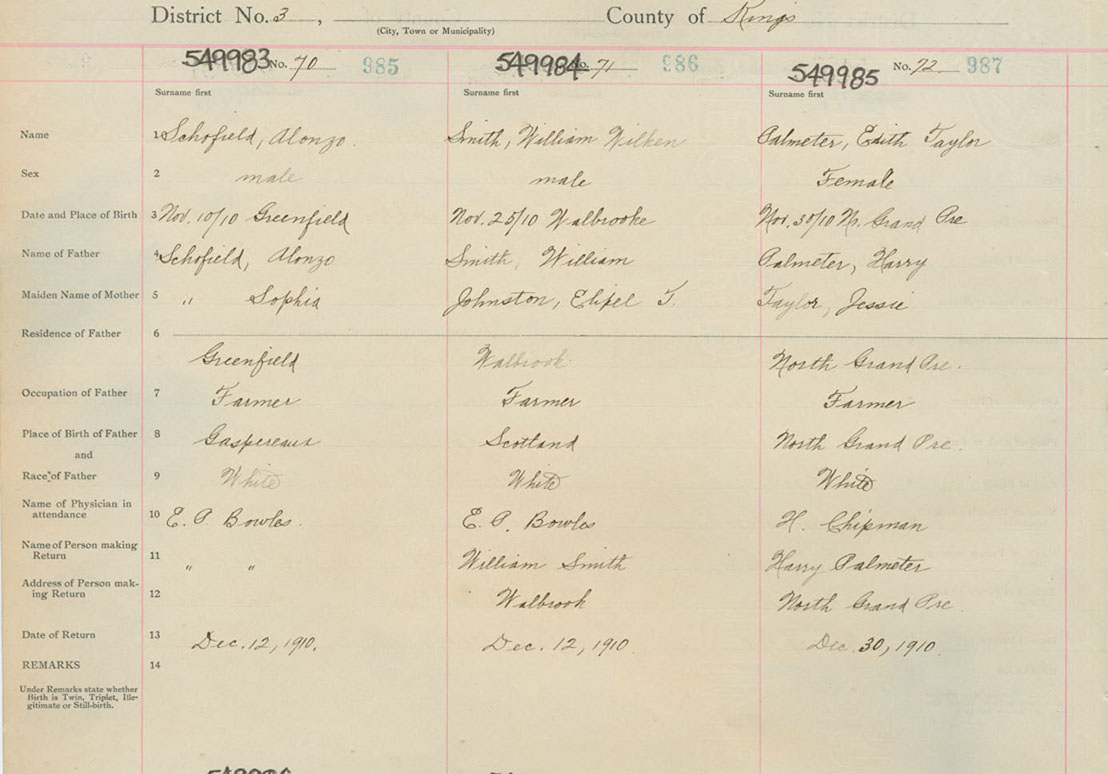 District No. 3, County of Kings
(City, Town or Municipality)
549983 No. 70 985 549984 No. 71 986 549985 No. 72 987
Surname first Surname first Surname first
Name 1 Schofield, Alonzo. Smith, William Wilken Palmeter, Edith Taylor
Sex 2 male male Female
Date and Place of Birth 3 Nov. 10/10 Greenfield Nov. 25/10 Walbrooke Nov. 30/10 N. Grand Pre
Name of Father 4 Schofield, Alonzo Smith, William Palmeter, Harry
Maiden Name of Mother 5 " Sophia Johnston, T. Taylor, Jessie
Residence of Father 6
Greenfield Walbrook North Grand Pre.
Occupation of Father 7 Farmer Farmer Farmer
Place of Birth of Father 8 Gaspereaux Scotland North Grand Pre.
and
Race of Father 9 White White White
Name of Physician in
attendance 10 E. P. Bowles. E. P. Bowles H. Chipman
Name of Person making
Return 11 " " William Smith Harry Palmeter
Address of Person mak-
ing Return 12 Walbrook North Grand Pre.
Date of Return 13 Dec. 12, 1910. Dec. 12, 1910. Dec. 30, 1910.
REMARKS 14
Under Remarks state whether
Birth is Twin, Triplet, Ille-
gitimate or Still-birth.